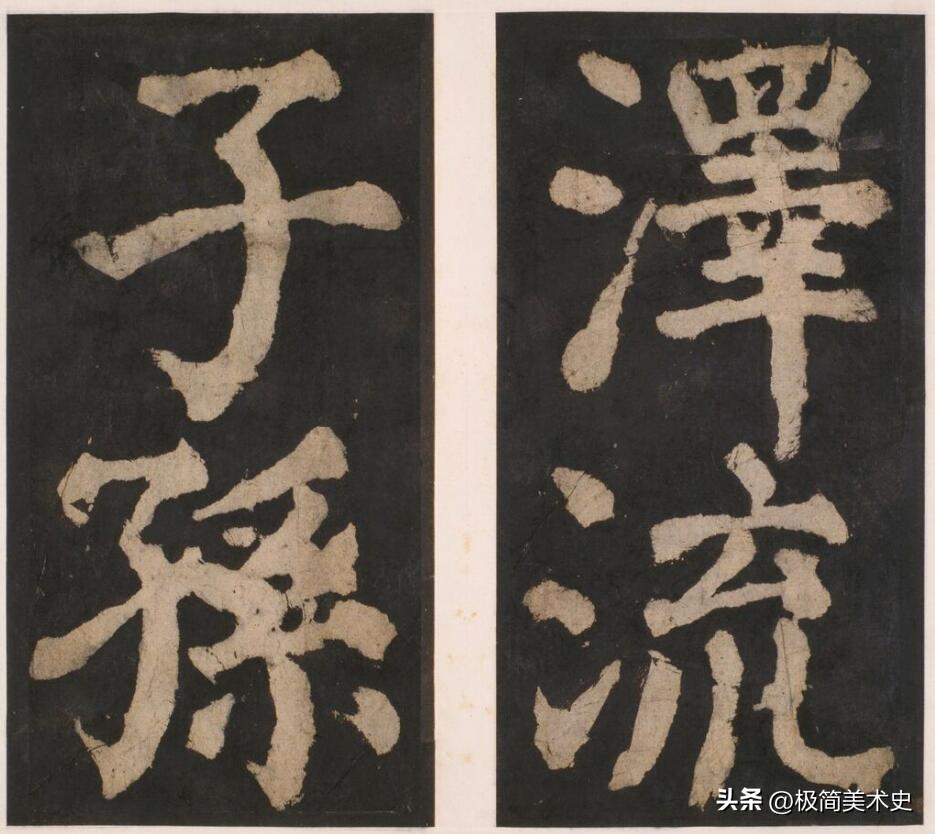 澤流
子孫
头条 @极简美术史